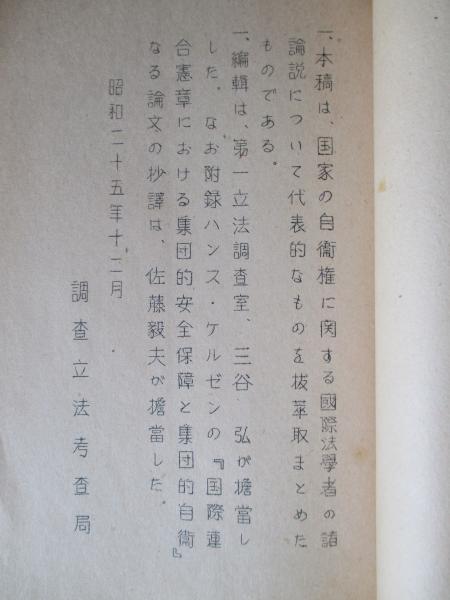 一、本稿は、国家の自衞権に関する國際法學者の諸
論説について代表的なものを抜萃取まとめた
ものである。
一、編輯は、第一立法調査室、三谷 弘が擔当し
した。なお附録ハンス・ケルゼンの『国際連
合憲章における集団的安全保障と集団的自衞』
なる論文の抄譯は、佐藤毅夫が擔當した。
昭和二十五年十二月
調査立法考査局